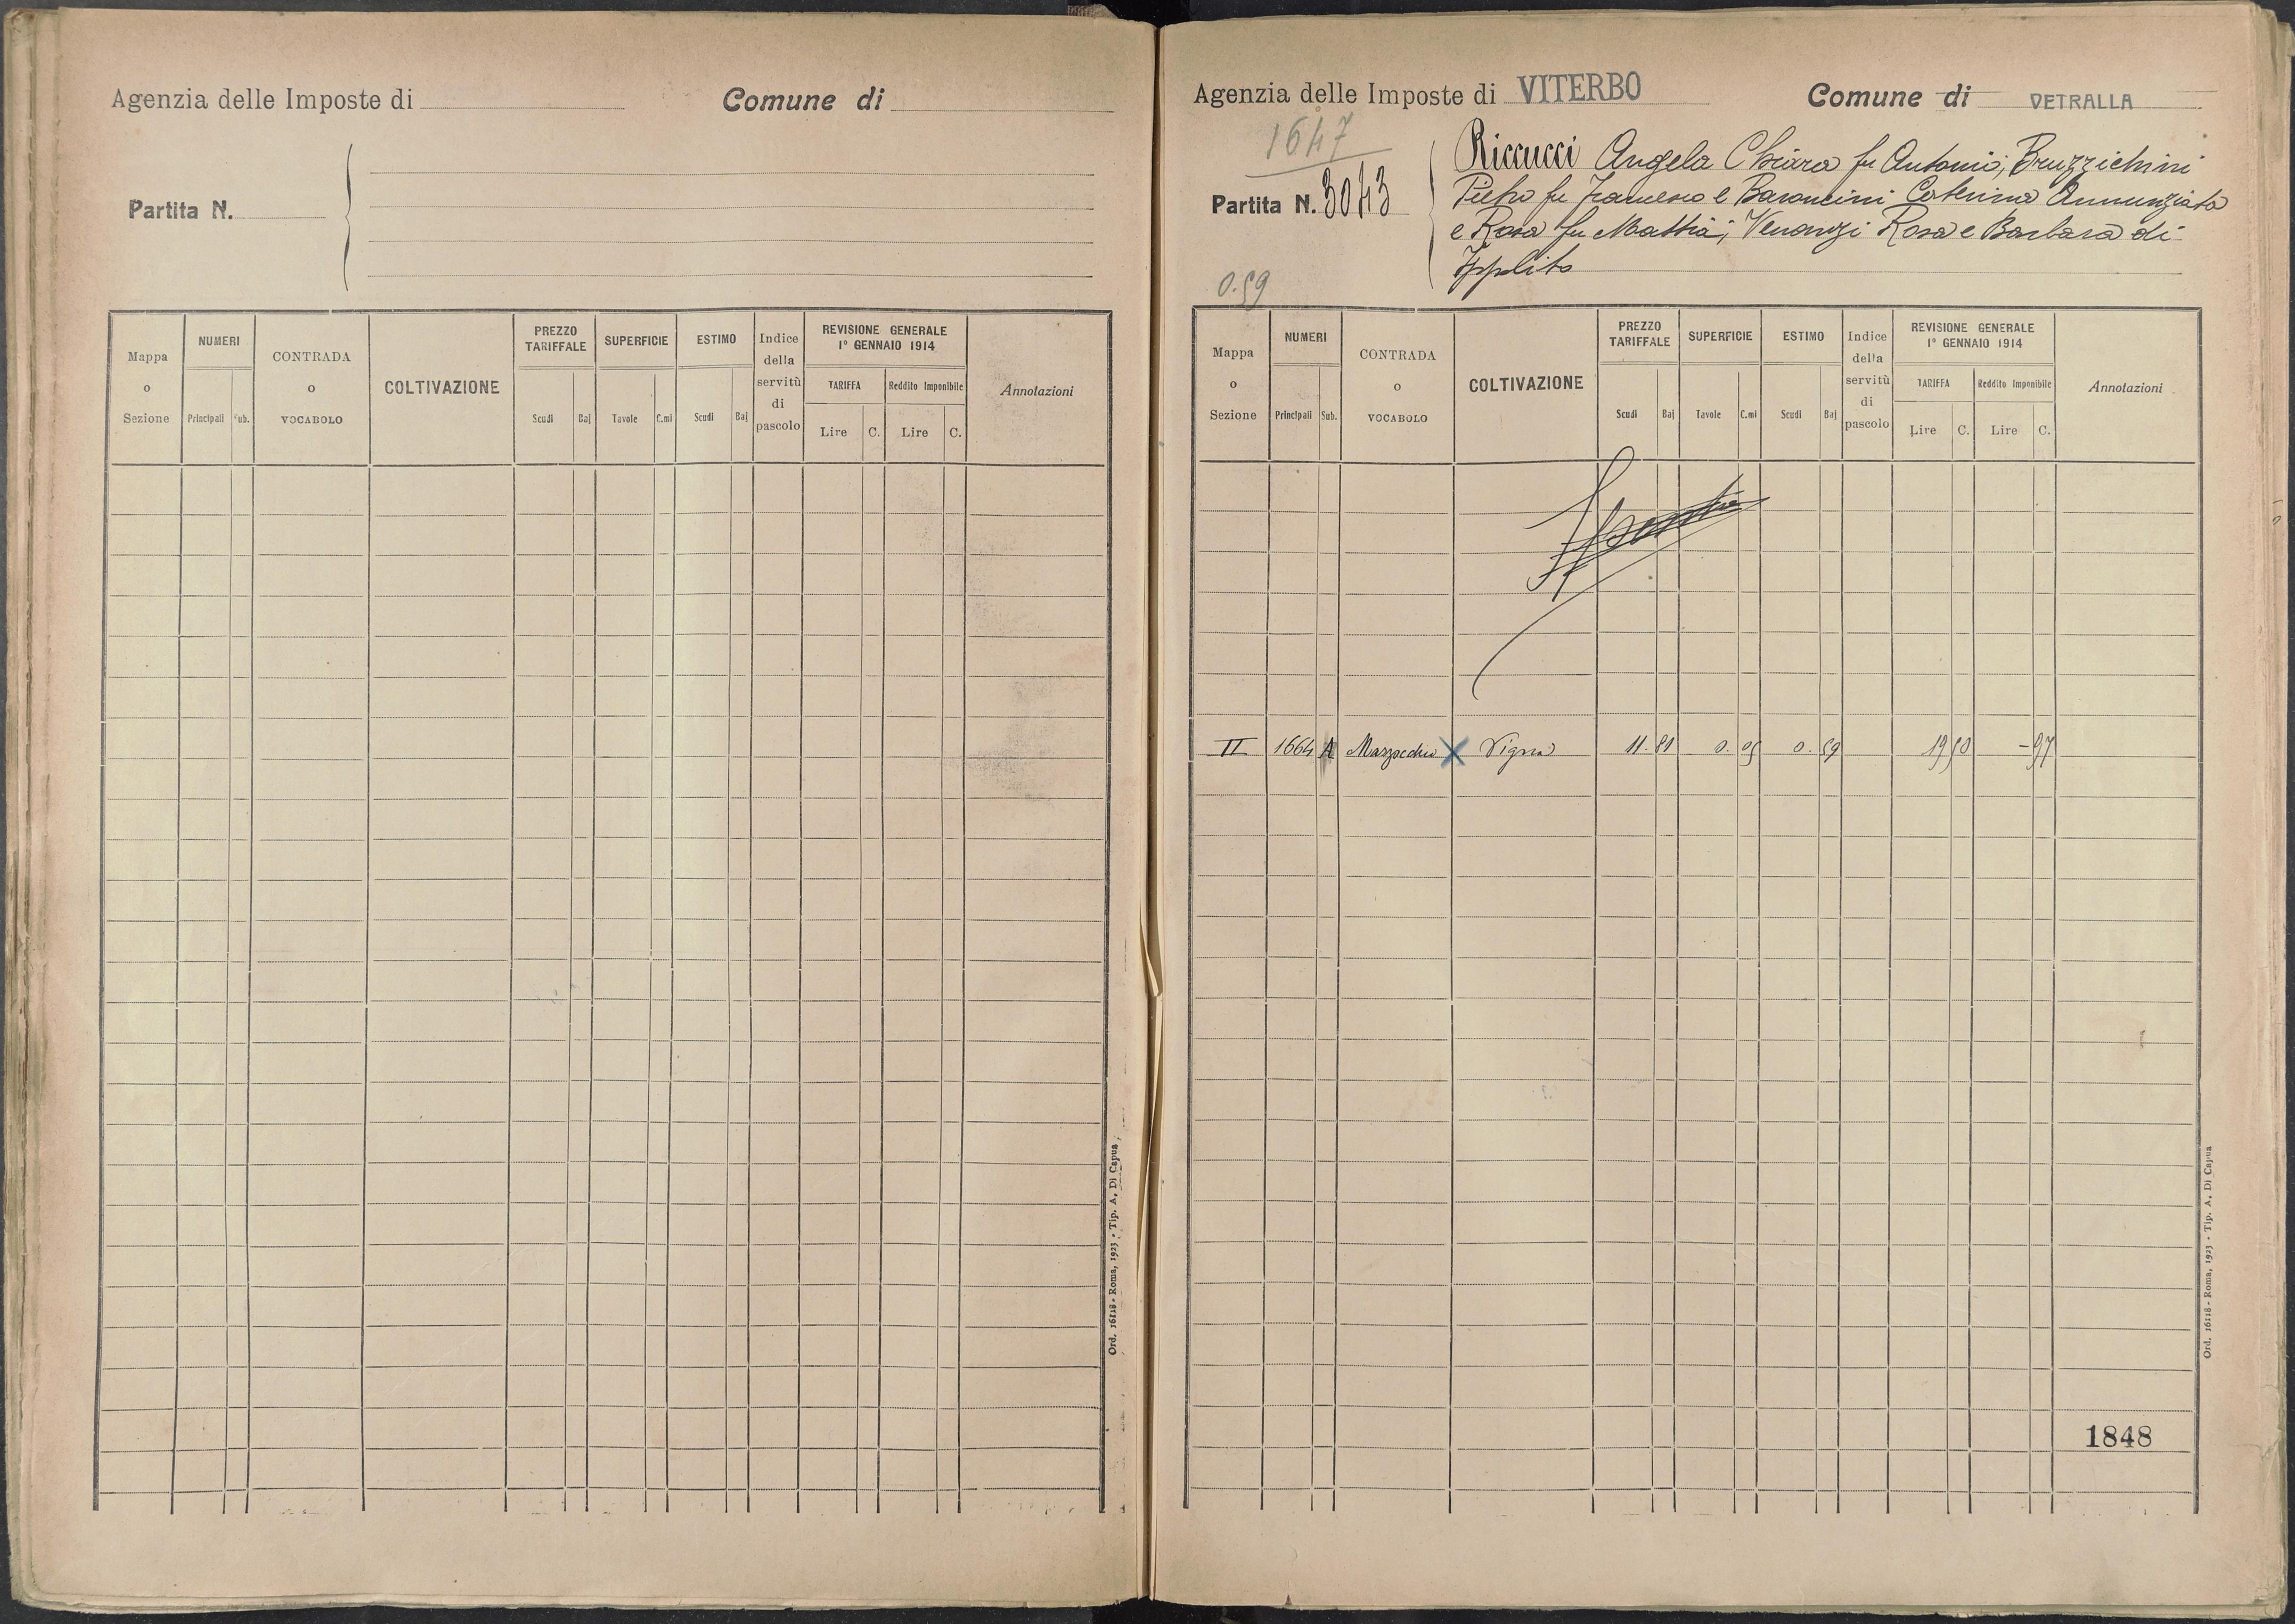 Agenzia delle Imposte di
Comune di
Partita N.
Mappa o Sezione
NUMERI
Principali
Sub.
CONTRADA o VOCABOLO
COLTIVAZIONE
PREZZO TARIFFALE
Scudi
Baj
SUPERFICIE
Tavole
C.mi
ESTIMO
Scudi
Baj
Indice della servitù di pascolo
REVISIONE GENERALE
1° GENNAIO 1914
TARIFFA
Reddito Imponibile
Lire
C.
Lire
C.
Annotazioni
Ord. 16118 - Roma, 1923 - Tip. A. Di Capua
Agenzia delle Imposte di VITERBO
Comune di VETRALLA
1647
Partita N. 3043
Riccucci Angela Chiara fu Antonio; Bruzzichini
Pietro fu Francesco e Baroncini Caterina Annunziata
e Rosa fu Mattia; Venanzi Rosa e Barbara di
Ippolito
0.59
Mappa o Sezione
NUMERI
Principali
Sub.
CONTRADA o VOCABOLO
COLTIVAZIONE
PREZZO TARIFFALE
Scudi
Baj
SUPERFICIE
Tavole
C.mi
ESTIMO
Scudi
Baj
Indice della servitù di pascolo
REVISIONE GENERALE
1° GENNAIO 1914
TARIFFA
Reddito Imponibile
Lire
C.
Lire
C.
Annotazioni
II 1664 A Vigna 11.81 0.05 0.59 19 50 - 97
1848
Ord. 16118 - Roma, 1923 - Tip. A. Di Capua